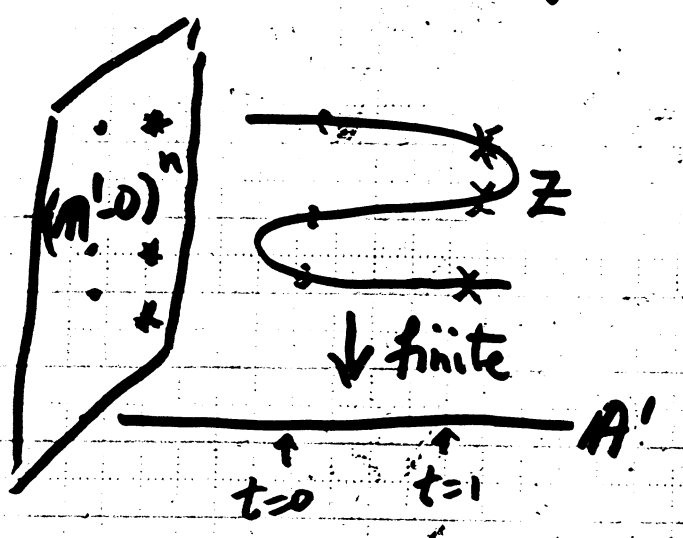 (A¹-0)ⁿ
Z
↓ finite
A¹
t=0 t=1